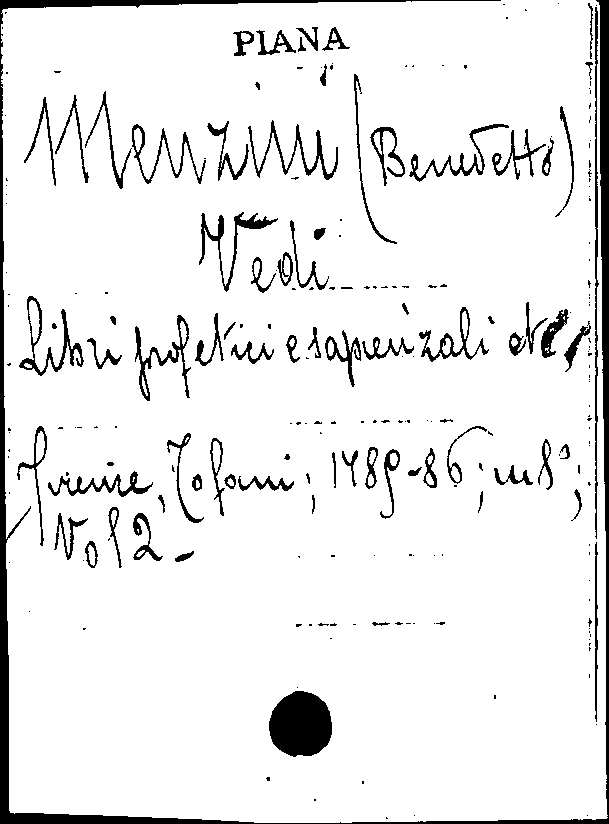 PIANA
Menzini (Benedetto)
Vedi
Libri profetici e sapienzali etc,
Firenze, Tofani; 1785-86; in 8°;
Vol 2 -